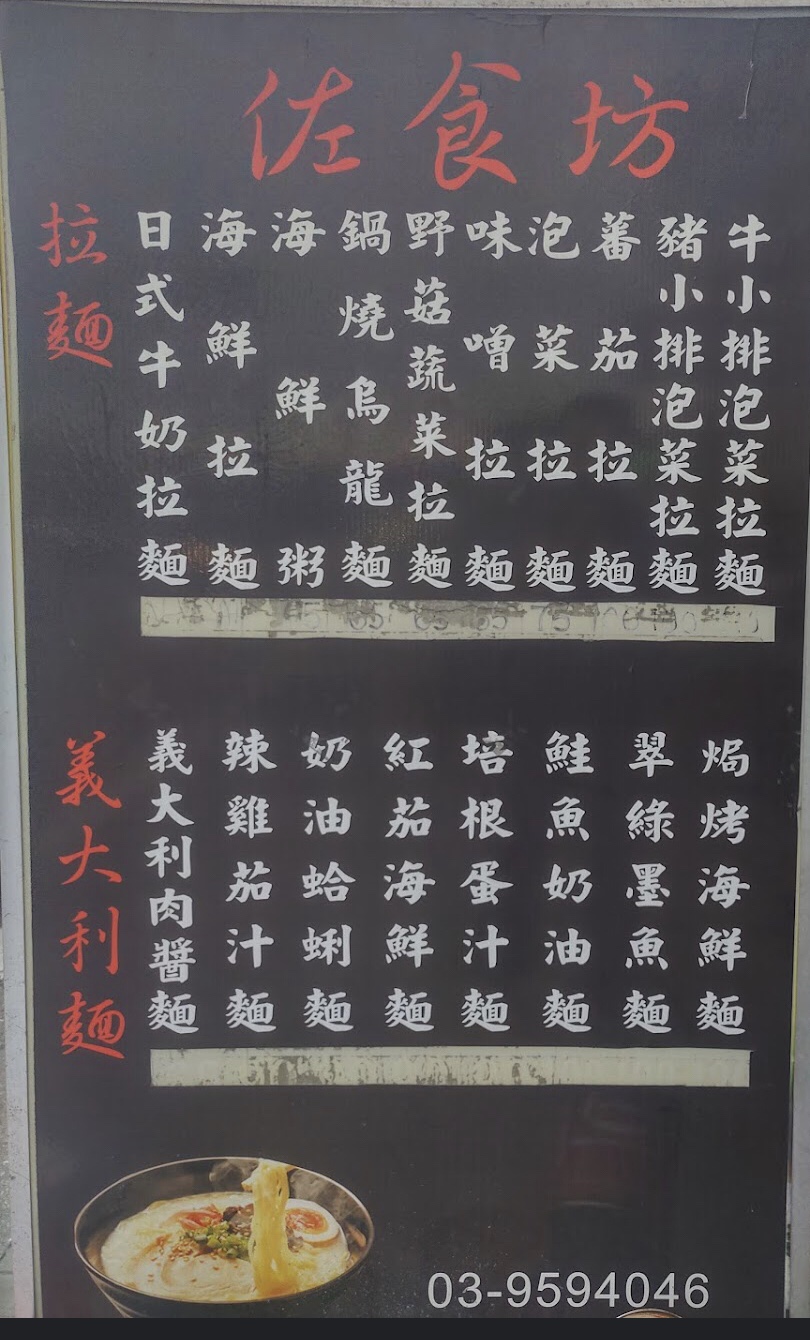 佐食坊
拉麵
日式牛奶拉麵
海鮮拉麵
海鮮粥
鍋燒烏龍麵
野菇蔬菜拉麵
味噌拉麵
泡菜拉麵
蕃茄拉麵
豬小排泡菜拉麵
牛小排泡菜拉麵
義大利麵
義大利肉醬麵
辣雞茄汁麵
奶油蛤蜊麵
紅茄海鮮麵
培根蛋汁麵
鮭魚奶油麵
翠綠墨魚麵
焗烤海鮮麵
03-9594046